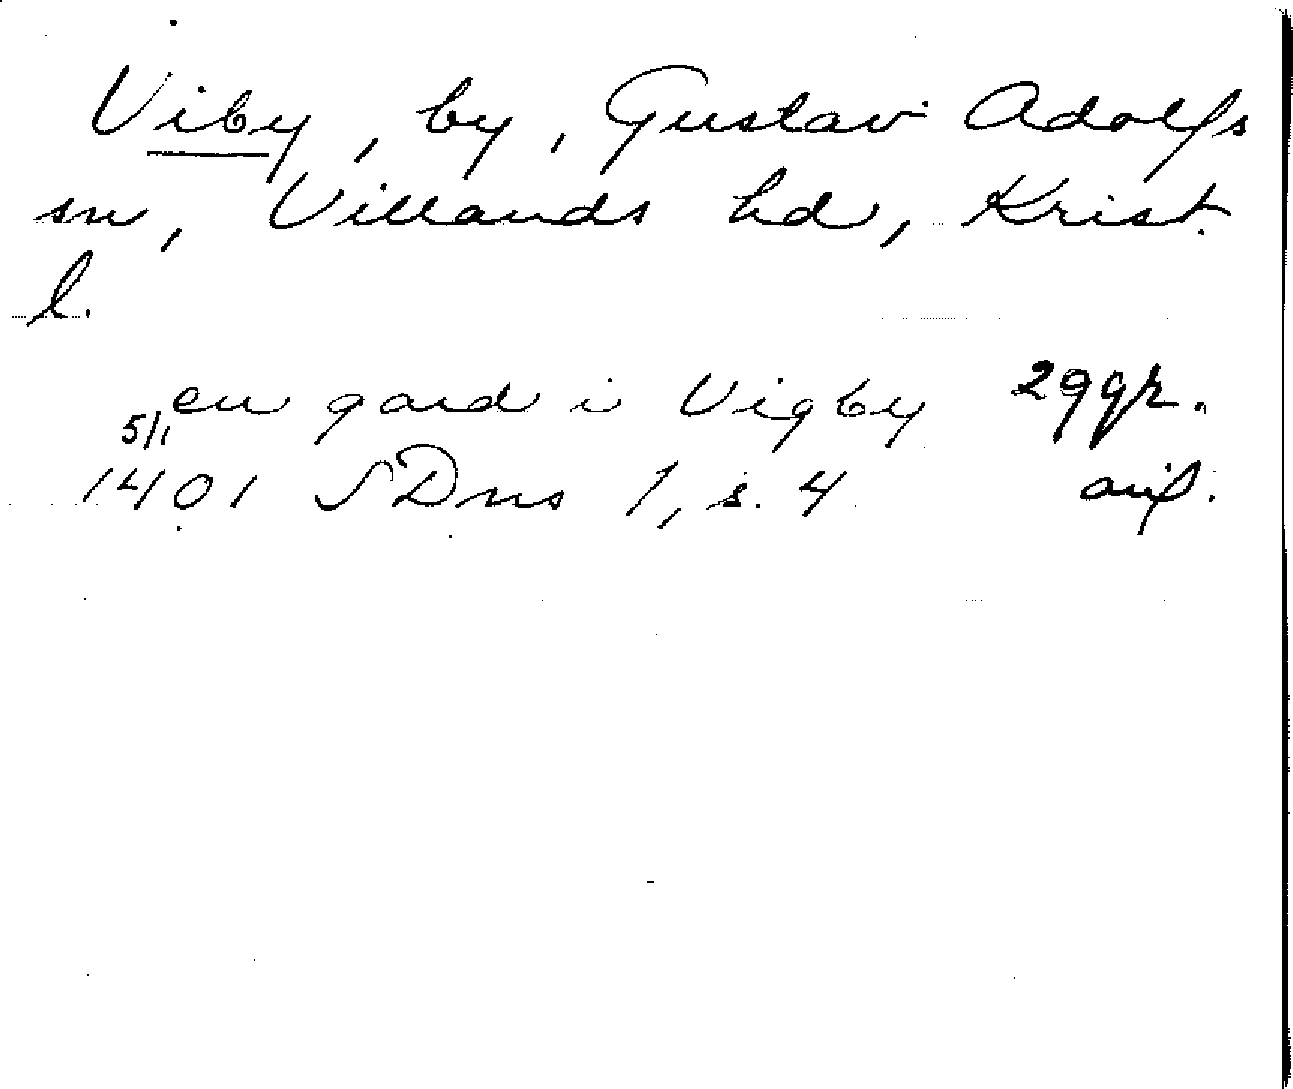 Viby, by, Gustav Adolfs
sn, Villands hd, Krist.
l.
en gard i Vigby
5/1 1401 SDns 1, s. 4